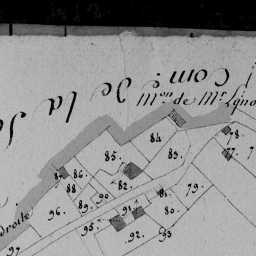 Com.ne de la
de
84
85.
83.
86.
87
88
82.
89
90
81.
79.
80.
78
77.
96.
91
95.
92.
93
97
droite